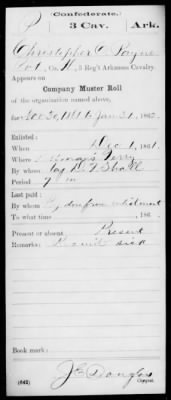 Confederate.
3 Cav. Ark.
Christopher C. Payne
Co. H, 3 Reg't Arkansas Cavalry.
Appears on
Company Muster Roll
of the organization named above,
for Dec 30, 1861 to Jan 31, 1862.
Enlisted:
When Dec 1, 1861.
Where Ferry
By whom
Period
Last paid:
By whom from enlistment
To what time , 186 .
Present or absent Present
Remarks: sick
Book mark:
(642) Copyist.